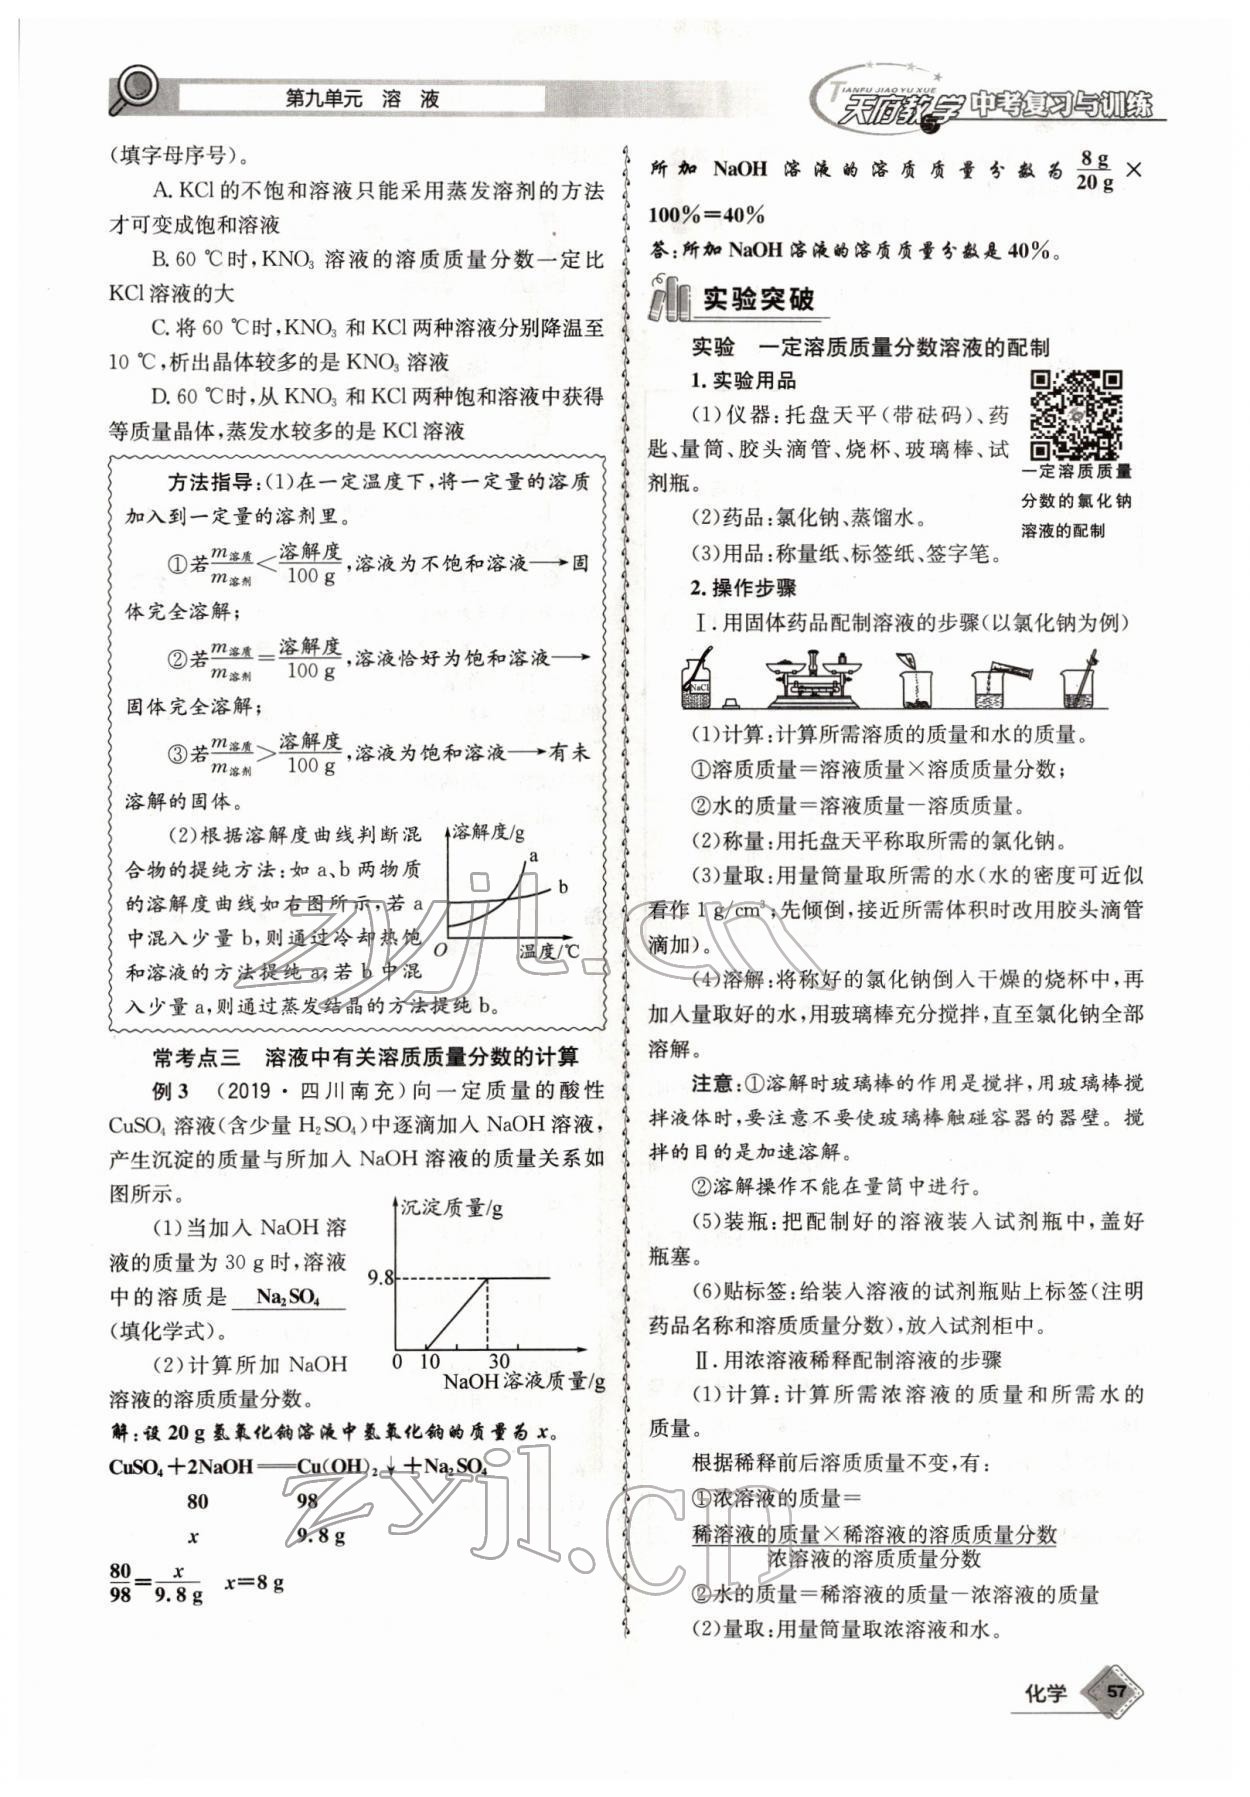 第九单元 溶 液
TIANFU JIAO YU XUE
天府教与学 中考复习与训练
(填字母序号)。
A. KCl 的不饱和溶液只能采用蒸发溶剂的方法
才可变成饱和溶液
B. 60 ℃时,KNO₃ 溶液的溶质质量分数一定比
KCl 溶液的大
C. 将 60 ℃时,KNO₃ 和 KCl 两种溶液分别降温至
10 ℃,析出晶体较多的是 KNO₃ 溶液
D. 60 ℃时,从 KNO₃ 和 KCl 两种饱和溶液中获得
等质量晶体,蒸发水较多的是 KCl 溶液
方法指导:(1)在一定温度下,将一定量的溶质
加入到一定量的溶剂里。
①若 m溶质/m溶剂 < 溶解度/100 g,溶液为不饱和溶液→固
体完全溶解;
②若 m溶质/m溶剂 = 溶解度/100 g,溶液恰好为饱和溶液→
固体完全溶解;
③若 m溶质/m溶剂 > 溶解度/100 g,溶液为饱和溶液→有未
溶解的固体。
(2)根据溶解度曲线判断混
合物的提纯方法:如 a、b 两物质
的溶解度曲线如右图所示,若 a
中混入少量 b,则通过冷却热饱
和溶液的方法提纯 a;若 b 中混
入少量 a,则通过蒸发结晶的方法提纯 b。
溶解度/g
a
b
O
温度/℃
常考点三 溶液中有关溶质质量分数的计算
例 3 (2019·四川南充)向一定质量的酸性
CuSO₄ 溶液(含少量 H₂SO₄)中逐滴加入 NaOH 溶液,
产生沉淀的质量与所加入 NaOH 溶液的质量关系如
图所示。
(1)当加入 NaOH 溶
液的质量为 30 g 时,溶液
中的溶质是 Na₂SO₄
(填化学式)。
(2)计算所加 NaOH
溶液的溶质质量分数。
沉淀质量/g
9.8
0 10 30
NaOH 溶液质量/g
解:设 20 g 氢氧化钠溶液中氢氧化钠的质量为 x。
CuSO₄+2NaOH══Cu(OH)₂↓+Na₂SO₄
80 98
x 9.8 g
80/98=x/9.8 g x=8 g
所加 NaOH 溶液的溶质质量分数为 8 g/20 g ×
100%=40%
答:所加 NaOH 溶液的溶质质量分数是 40%。
实验突破
实验 一定溶质质量分数溶液的配制
1. 实验用品
(1)仪器:托盘天平(带砝码)、药
匙、量筒、胶头滴管、烧杯、玻璃棒、试
剂瓶。
(2)药品:氯化钠、蒸馏水。
(3)用品:称量纸、标签纸、签字笔。
一定溶质质量
分数的氯化钠
溶液的配制
2. 操作步骤
Ⅰ. 用固体药品配制溶液的步骤(以氯化钠为例)
NaCl
(1)计算:计算所需溶质的质量和水的质量。
①溶质质量=溶液质量×溶质质量分数;
②水的质量=溶液质量-溶质质量。
(2)称量:用托盘天平称取所需的氯化钠。
(3)量取:用量筒量取所需的水(水的密度可近似
看作 1 g/cm³;先倾倒,接近所需体积时改用胶头滴管
滴加)。
(4)溶解:将称好的氯化钠倒入干燥的烧杯中,再
加入量取好的水,用玻璃棒充分搅拌,直至氯化钠全部
溶解。
注意:①溶解时玻璃棒的作用是搅拌,用玻璃棒搅
拌液体时,要注意不要使玻璃棒触碰容器的器壁。搅
拌的目的是加速溶解。
②溶解操作不能在量筒中进行。
(5)装瓶:把配制好的溶液装入试剂瓶中,盖好
瓶塞。
(6)贴标签:给装入溶液的试剂瓶贴上标签(注明
药品名称和溶质质量分数),放入试剂柜中。
Ⅱ. 用浓溶液稀释配制溶液的步骤
(1)计算:计算所需浓溶液的质量和所需水的
质量。
根据稀释前后溶质质量不变,有:
①浓溶液的质量=
稀溶液的质量×稀溶液的溶质质量分数
浓溶液的溶质质量分数
②水的质量=稀溶液的质量-浓溶液的质量
(2)量取:用量筒量取浓溶液和水。
化学 57
zyjl.cn
zyjl.cn